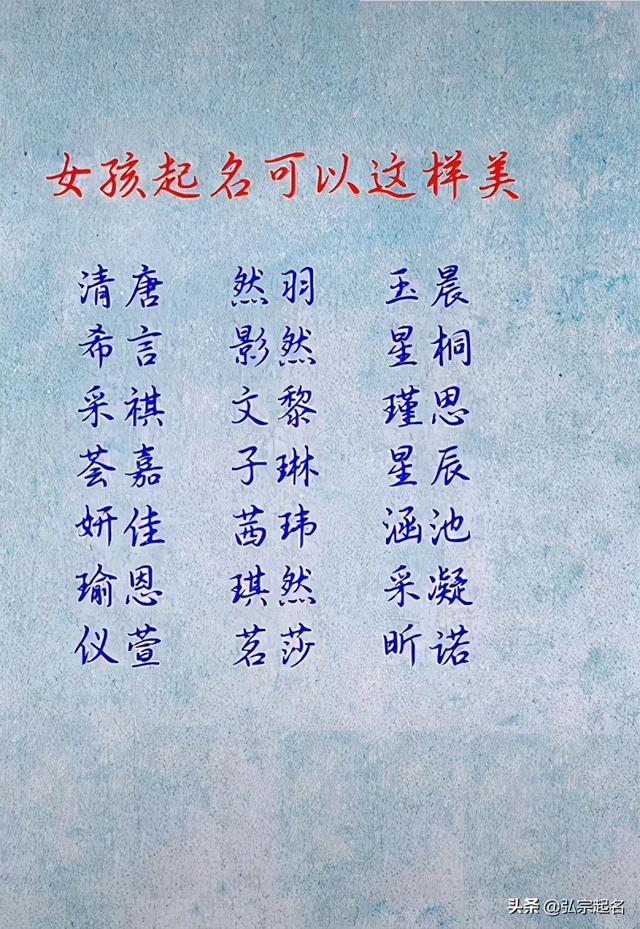 女孩起名可以这样美
清唐 然羽 玉晨
希言 影然 星桐
采祺 文黎 瑾思
荟嘉 子琳 星辰
妍佳 茜玮 涵池
瑜恩 琪然 采凝
仪萱 茗莎 昕诺
头条 @弘宗起名